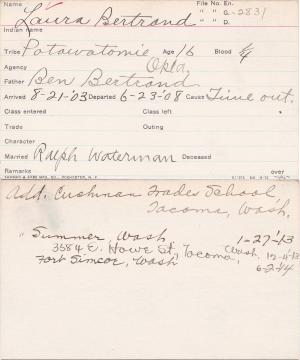 Name Laura Bertrand File No. En. 6-2831
Indian Name " " D.
Tribe Potawatomie Age 16 Blood 1/4
Agency Okla
Father Ben Bertrand
Arrived 8-21-'03 Departed 6-23-'08 Cause Time out.
Class entered Class left
Trade Outing
Character
Married Ralph Waterman Deceased
Remarks over
Add. Cushman Trades School,
Tacoma, Wash.
" Sumner, Wash 1-27-'13
3584 E. Howe St., Tacoma, Wash. 12-4-13
Fort Simcoe, Wash 6-2-14